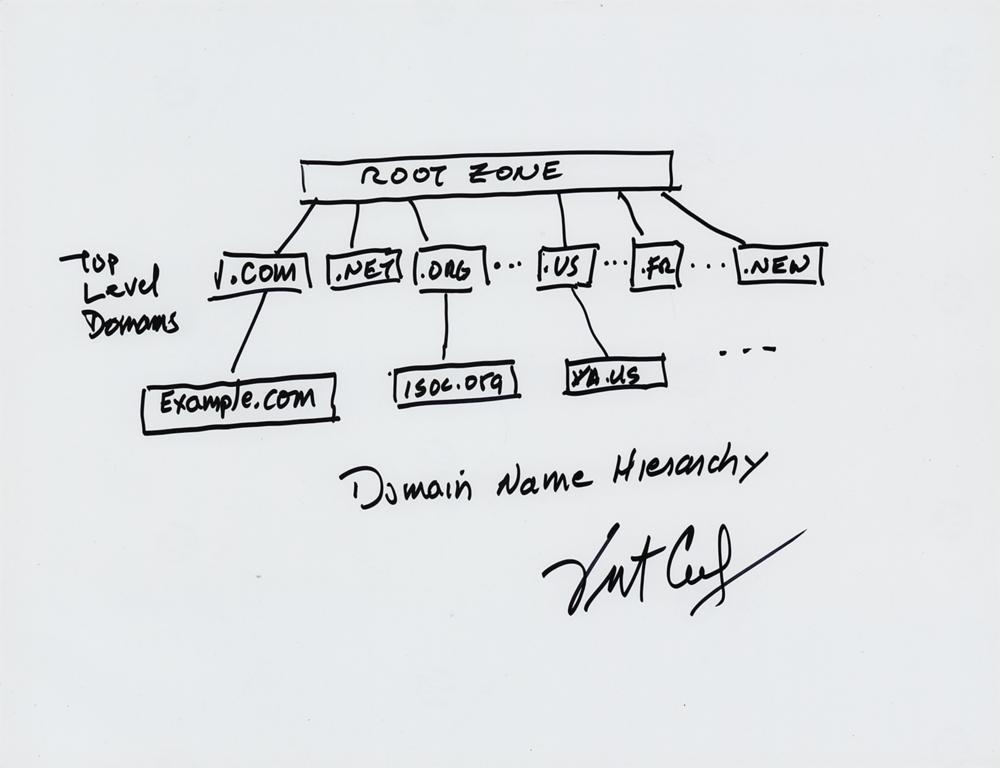 ROOT ZONE
Top
Level
Domains
.COM
.NET
.ORG
...
.US
...
.FR
...
.NEW
Example.com
isoc.org
VA.US
...
Domain Name Hierarchy
Vint Cerf